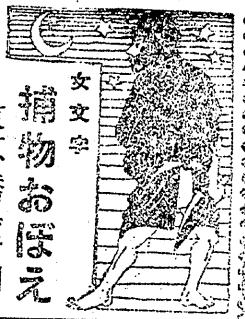 女文字
捕物おぼえ